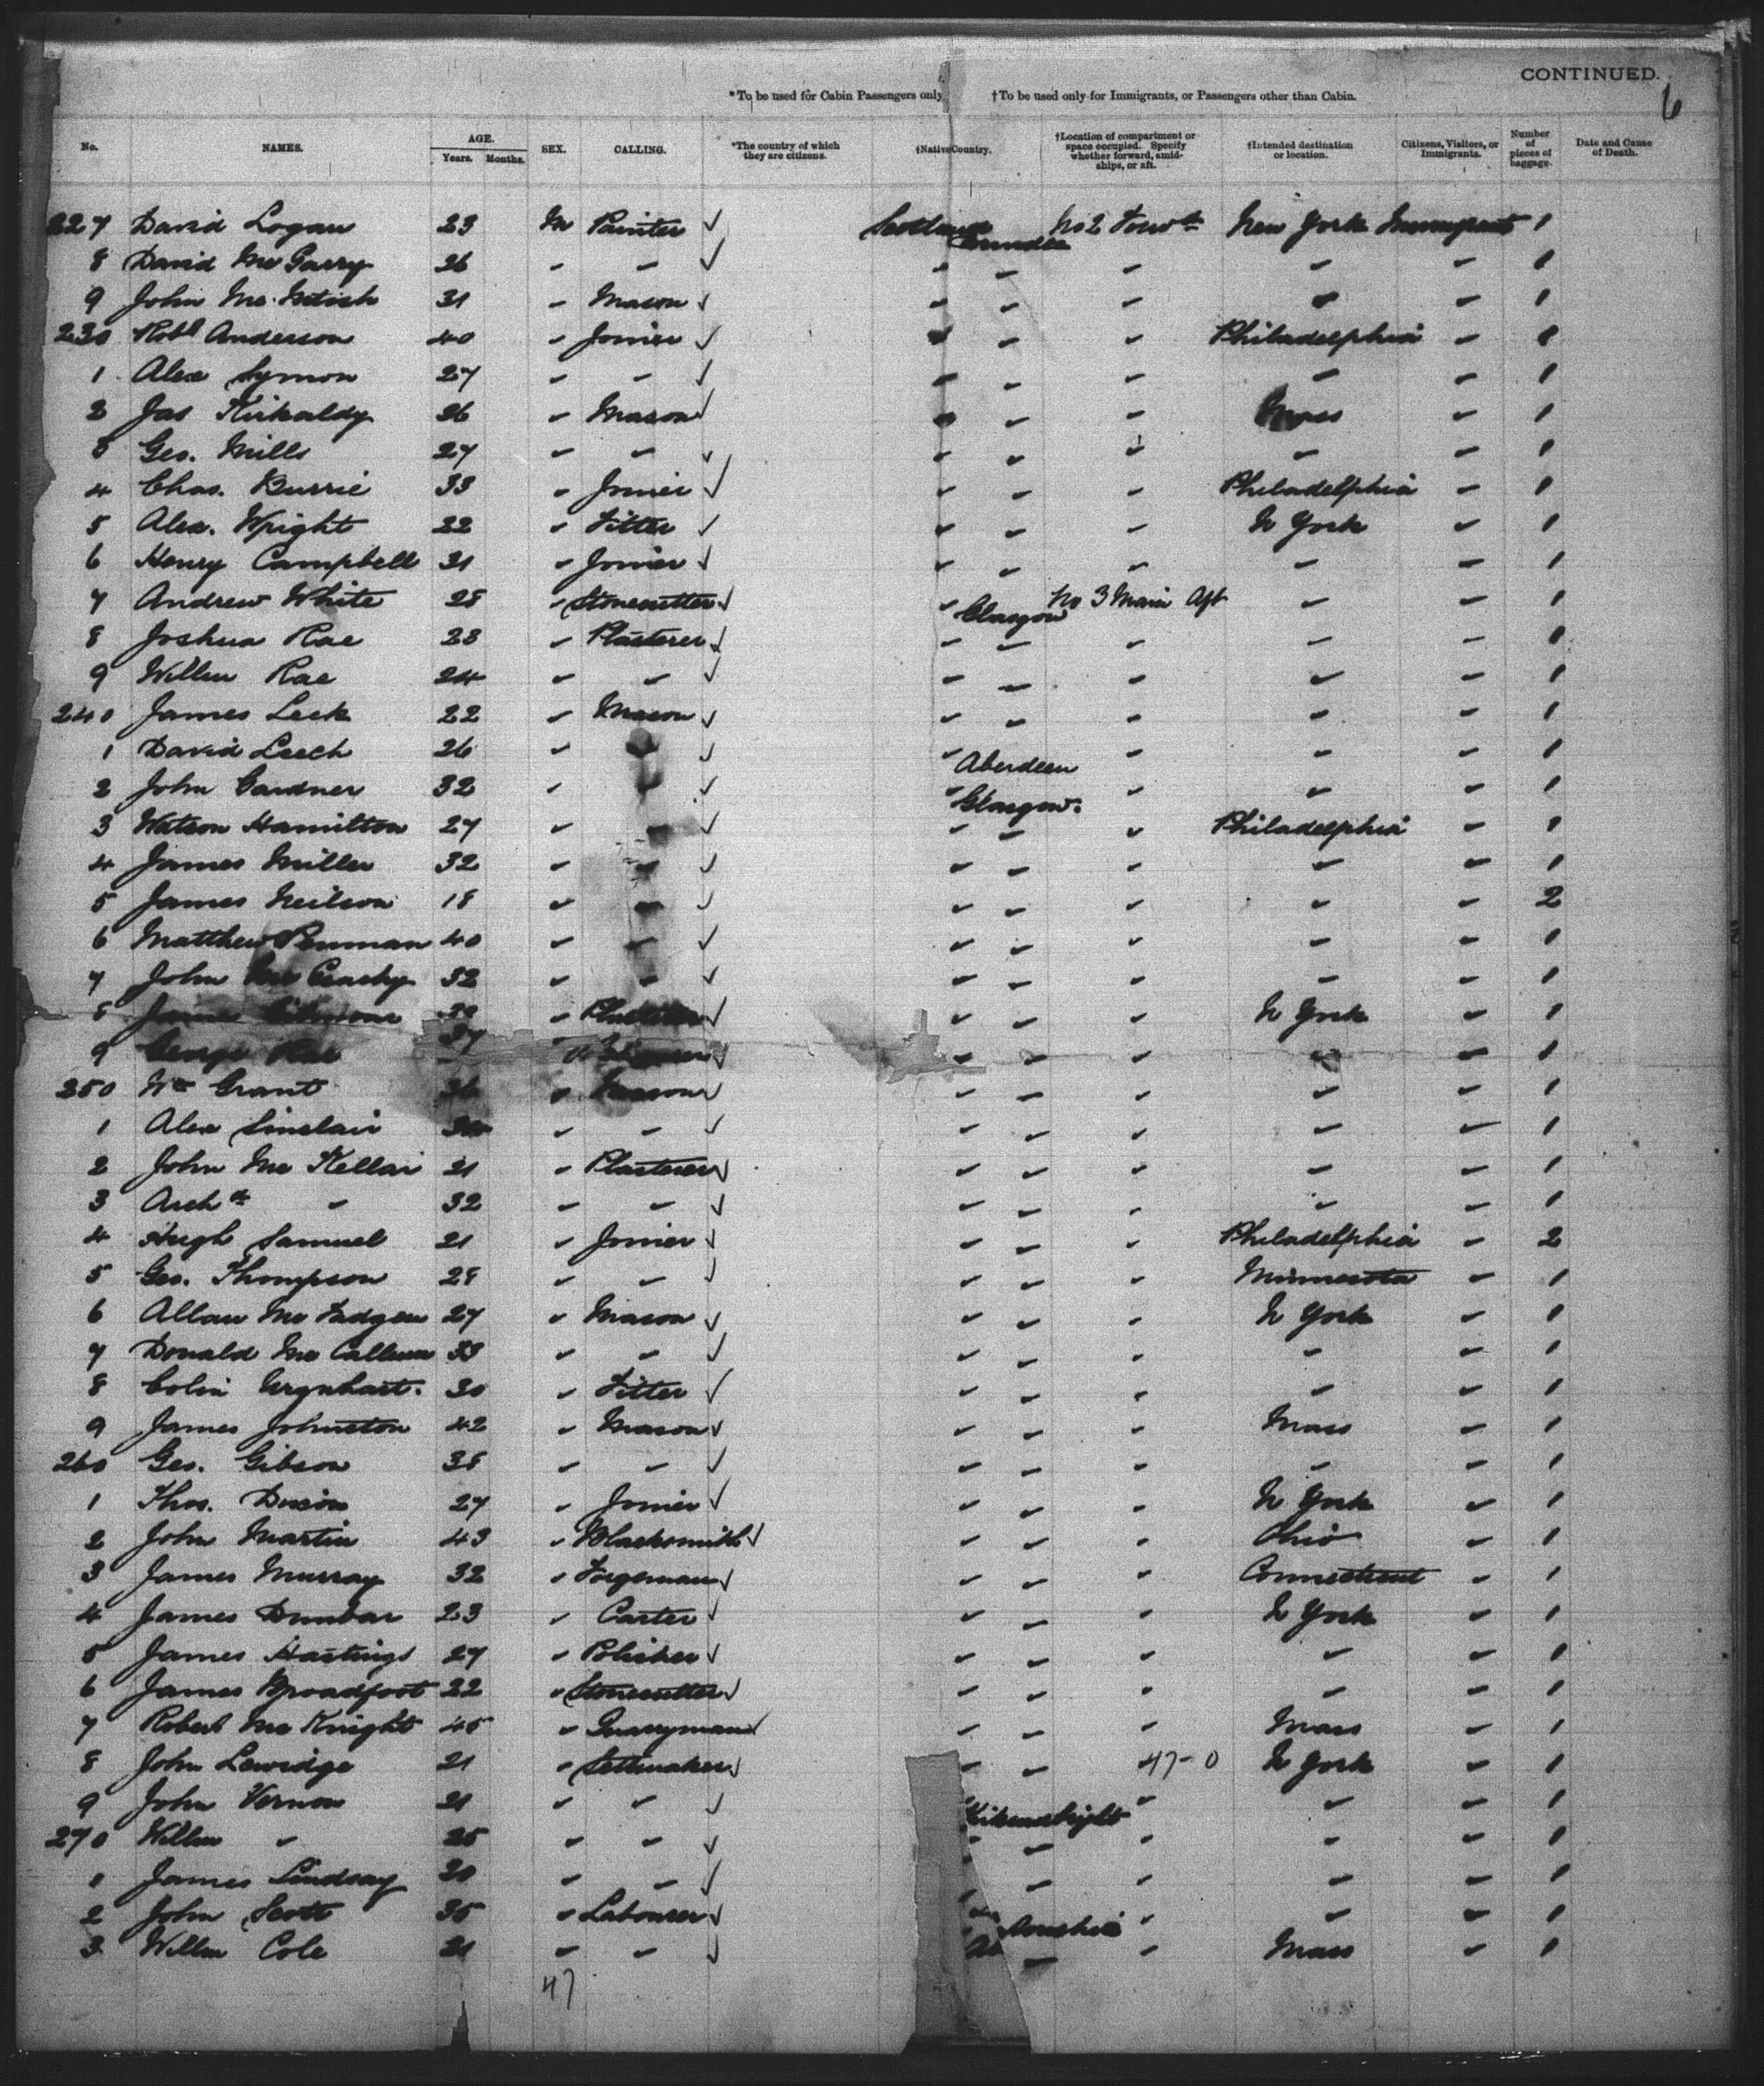 CONTINUED.
6
*To be used for Cabin Passengers only †To be used only for Immigrants, or Passengers other than Cabin.
No. NAMES. AGE. Years. Months. SEX. CALLING. *The country of which they are citizens. †Native Country. †Location of compartment or space occupied. Specify whether forward, amidships, or aft. †Intended destination or location. Citizens, Visitors, or Immigrants. Number of pieces of baggage. Date and Cause of Death.
227 David Logan 23 M Painter ✓ Scotland Dundee No 2 Forwd New York Immigrant 1
8 David Mc Garry 26 " " ✓ " " " " " 1
9 John Mc Intosh 31 " Mason ✓ " " " " " 1
230 Robt Anderson 40 " Joiner ✓ " " " Philadelphia " 1
1 Alex Symon 27 " " ✓ " " " " " 1
2 Jas Kirkaldy 26 " Mason ✓ " " " Mass " 1
3 Geo. Mills 27 " " ✓ " " " " " 1
4 Chas. Burrie 33 " Joiner ✓ " " " Philadelphia " 1
5 Alex. Wright 22 " Fitter ✓ " " " N York " 1
6 Henry Campbell 31 " Joiner ✓ " " " " " 1
7 Andrew White 28 " Stonecutter ✓ " Glasgow No 3 Main Aft " " 1
8 Joshua Rae 28 " Plasterer ✓ " " " " " 1
9 Willm Rae 24 " " ✓ " " " " " 1
240 James Leck 22 " Mason ✓ " " " " " 1
1 David Leech 26 " " ✓ " Aberdeen " " " 1
2 John Gardner 32 " " ✓ " Glasgow. " " " 1
3 Watson Hamilton 27 " " ✓ " " " Philadelphia " 1
4 James Miller 32 " " ✓ " " " " " 1
5 James Neilson 18 " " ✓ " " " " " 2
6 Matthew Penman 40 " " ✓ " " " " " 1
7 John 32 " " ✓ " " " " " 1
8 James " Plasterer ✓ " " " N York " 1
9 George Rae 37 " ✓ " " " " " 1
250 Wm Grant 26 " Mason ✓ " " " " " 1
1 Alex Sinclair " " ✓ " " " " " 1
2 John Mc Kellar 21 " Plasterer ✓ " " " " " 1
3 Archd " 32 " " ✓ " " " " " 1
4 Hugh Samuel 21 " Joiner ✓ " " " Philadelphia " 2
5 Geo. Thompson 28 " " ✓ " " " Minnesota " 1
6 Allan Mc Fadgen 27 " Mason ✓ " " " N York " 1
7 Donald Mc Callum 33 " " ✓ " " " " " 1
8 Colin Urquhart. 30 " Fitter ✓ " " " " " 1
9 James Johnston 42 " Mason ✓ " " " Mass " 1
260 Geo. Gibson 38 " " ✓ " " " " " 1
1 Thos. Dixon 27 " Joiner ✓ " " " N York " 1
2 John Martin 43 " Blacksmith ✓ " " " Ohio " 1
3 James Murray 32 " Forgeman ✓ " " " Connecticut " 1
4 James Dunbar 23 " Carter ✓ " " " N York " 1
5 James Hastings 27 " Polisher ✓ " " " " " 1
6 James Broadfoot 22 " Stonecutter ✓ " " " " " 1
7 Robert Mc Knight 45 " Quarryman ✓ " " " Mass " 1
8 John Lewidge 21 " Settmaker ✓ " " 47-0 N York " 1
9 John Vernon 21 " " ✓ Kirkcudbright " " " 1
270 Willm " 25 " " ✓ " " " " " 1
1 James Lindsay 20 " " ✓ " " " " 1
2 John Scott 35 " Labourer ✓ " " " 1
3 Willm Cole 21 " " ✓ " " Mass " 1
47